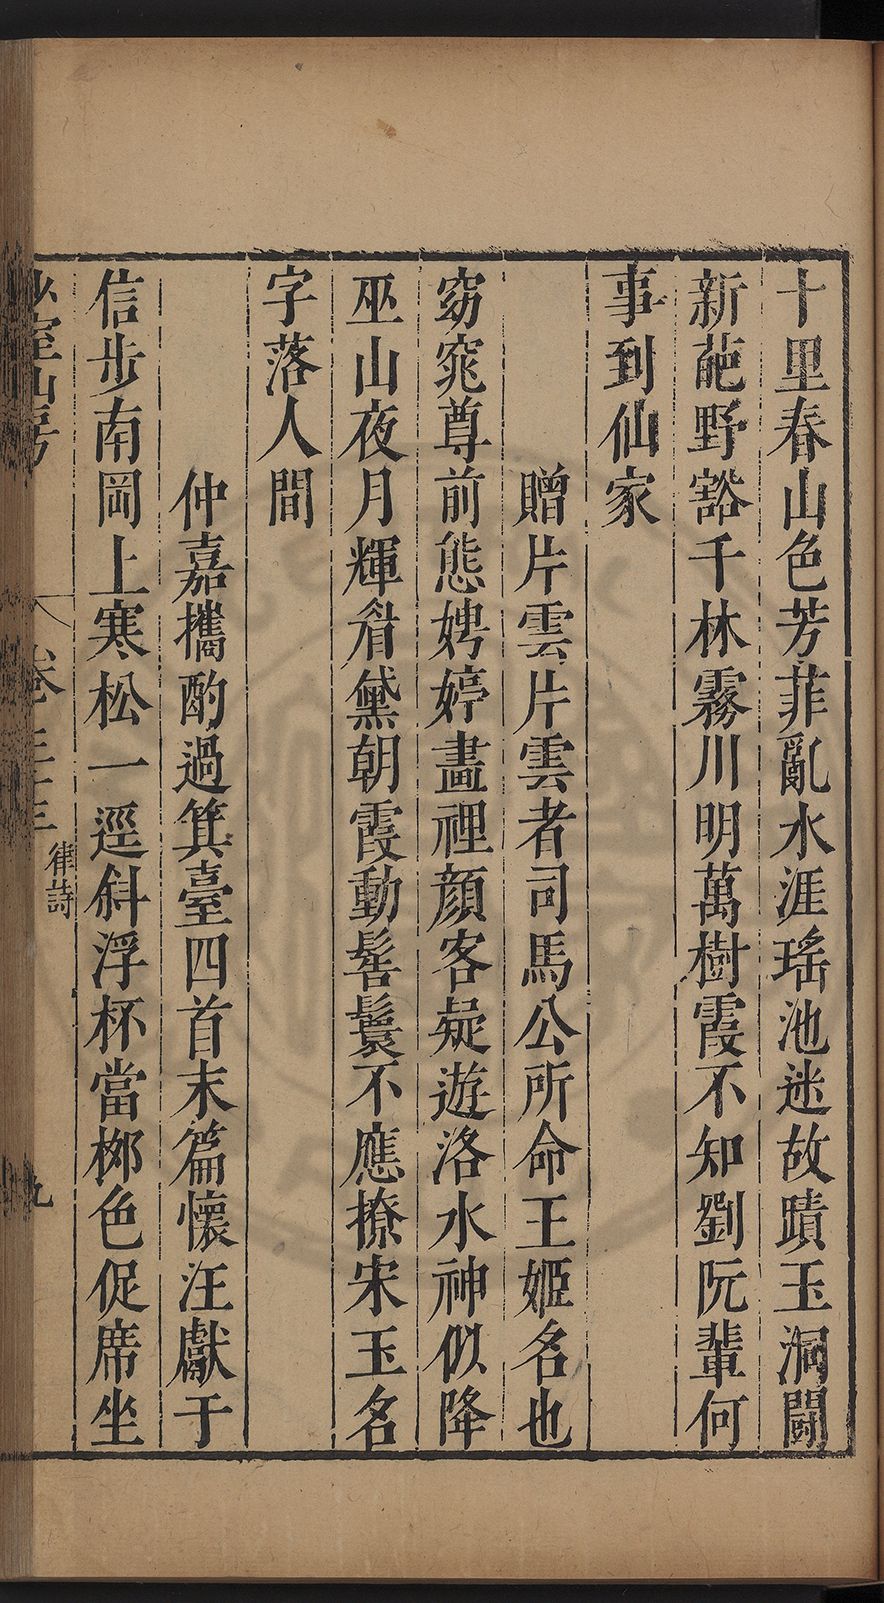 十里春山色芳菲亂水涯瑤池迷故蹟玉洞闢
新葩野豁千林霧川明萬樹霞不知劉阮輩何
事到仙家
贈片雲片雲者司馬公所命王姬名也
窈窕尊前態娉婷畫裡顏客疑遊洛水神似降
巫山夜月輝眉黛朝霞動髻鬟不應撩宋玉名
字落人間
仲嘉攜酌過箕臺四首末篇懷汪獻于
信步南岡上寒松一逕斜浮杯當桞色促席坐
少室山房
卷三十三
律詩
九